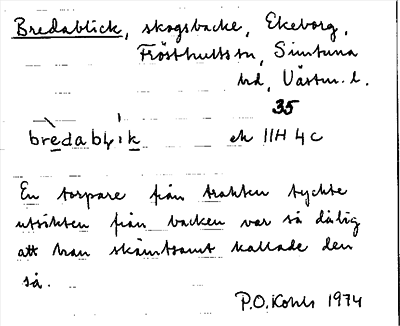 Bredablick, skogsbacke, Ekeborg,
Frösthultssn, Simtuna
hd, Västm. l.
35
bredablik ek 11H 4c
En torpare från trakten tyckte
utsikten från backen var så dålig
att han skämtsamt kallade den
så.
P.O. Kohls 1974